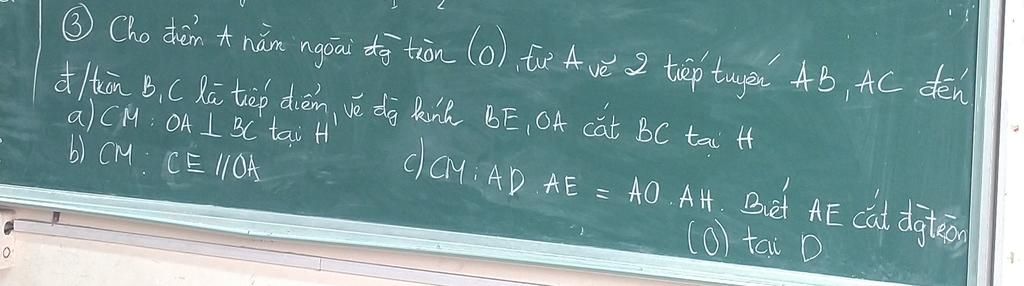 ③ Cho điểm A nằm ngoài đg tròn (O), từ A vẽ 2 tiếp tuyến AB, AC đến
đ/tròn B, C là tiếp điểm, vẽ đg kính BE, OA cắt BC tại H
a) CM: OA ⊥ BC tại H
b) CM: CE // OA c) CM: AD . AE = AO . AH. Biết AE cắt đg tròn
(O) tại D